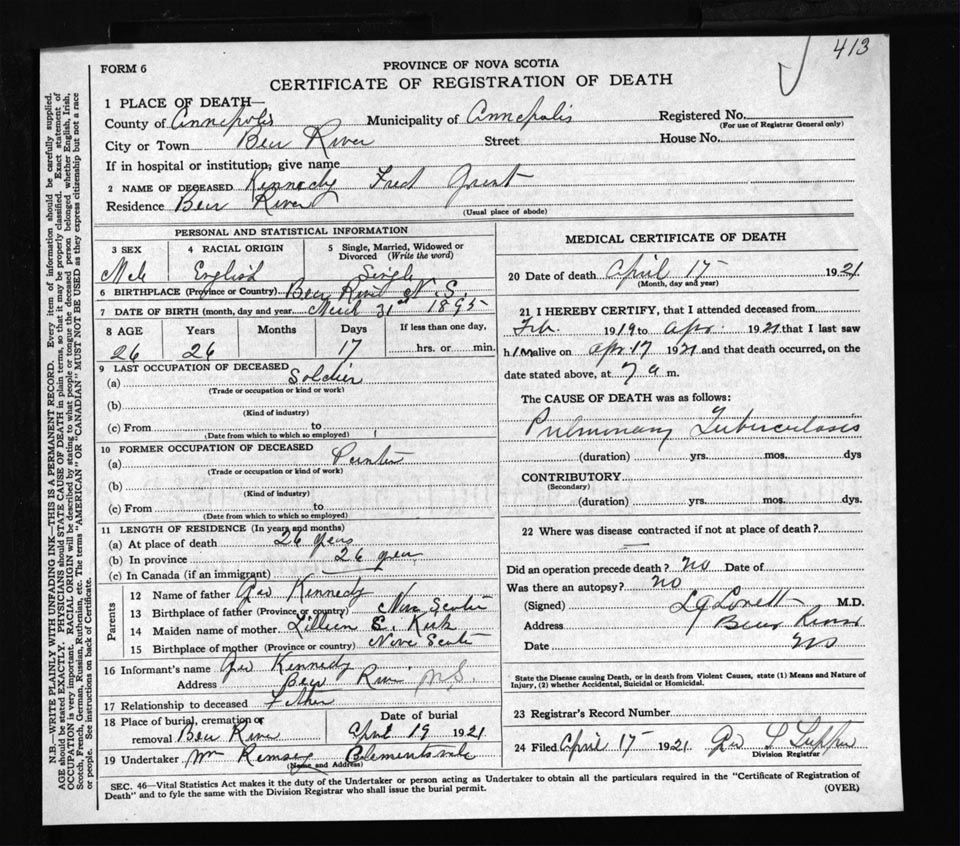 413
FORM 6
PROVINCE OF NOVA SCOTIA
CERTIFICATE OF REGISTRATION OF DEATH
1 PLACE OF DEATH—
County of Annapolis Municipality of Annapolis Registered No.
(For use of Registrar General only)
City or Town Bear River Street House No.
If in hospital or institution, give name
2 NAME OF DECEASED Kennedy Fred Grant
Residence Bear River
(Usual place of abode)
PERSONAL AND STATISTICAL INFORMATION
3 SEX 4 RACIAL ORIGIN 5 Single, Married, Widowed or Divorced (Write the word)
Male English Single
6 BIRTHPLACE (Province or Country) Bear River N.S.
7 DATE OF BIRTH (month, day and year) March 31st 1895
8 AGE Years Months Days If less than one day,
26 26 17 hrs. or min.
9 LAST OCCUPATION OF DECEASED
(a) Soldier
(Trade or occupation or kind or work)
(b)
(Kind of industry)
(c) From to
(Date from which to which so employed)
10 FORMER OCCUPATION OF DECEASED
(a)
(Trade or occupation of kind or work)
(b)
(Kind of industry)
(c) From to
(Date from which to which so employed)
11 LENGTH OF RESIDENCE (In years and months)
(a) At place of death 26 years
(b) In province 26 years
(c) In Canada (if an immigrant)
Parents
12 Name of father Geo Kennedy
13 Birthplace of father (Province or country) Nova Scotia
14 Maiden name of mother Lillian S. Kirk
15 Birthplace of mother (Province or country) Nova Scotia
16 Informant's name Geo Kennedy
Address Bear River N.S.
17 Relationship to deceased Father
18 Place of burial, cremation or removal Bear River Date of burial April 19 1921
19 Undertaker Wm Ramsey Clementsvale
(Name and Address)
MEDICAL CERTIFICATE OF DEATH
20 Date of death April 17 1921
(Month, day and year)
21 I HEREBY CERTIFY, that I attended deceased from
Feb. 1919 to Apr. 1921 that I last saw
him alive on Apr 17 1921 and that death occurred, on the
date stated above, at 7 a m.
The CAUSE OF DEATH was as follows:
Pulmonary Tuberculosis
(duration) yrs. mos. dys
CONTRIBUTORY
(Secondary)
(duration) yrs. mos. dys.
22 Where was disease contracted if not at place of death?
Did an operation precede death? No Date of
Was there an autopsy? No
(Signed) M.D.
Address Bear River
Date NS
State the Disease causing Death, or in death from Violent Causes, state (1) Means and Nature of
Injury, (2) whether Accidental, Suicidal or Homicidal.
23 Registrar's Record Number
24 Filed April 17 1921 Geo L
Division Registrar
SEC. 46—Vital Statistics Act makes it the duty of the Undertaker or person acting as Undertaker to obtain all the particulars required in the "Certificate of Registration of
Death" and to fyle the same with the Division Registrar who shall issue the burial permit. (OVER)
N.B.—WRITE PLAINLY WITH UNFADING INK—THIS IS A PERMANENT RECORD. Every item of information should be carefully supplied.
AGE should be stated EXACTLY. PHYSICIANS should STATE CAUSE OF DEATH in plain terms, so that it may be properly classified. Exact statement of
OCCUPATION is very important. RACIAL ORIGIN will be described by stating to what people or tongue the deceased person belonged whether English, Irish,
Scotch, French, German, Russian, Ruthenian, etc. The terms "AMERICAN" OR "CANADIAN" MUST NOT BE USED as they express citizenship but not a race
or people. See instructions on back of Certificate.